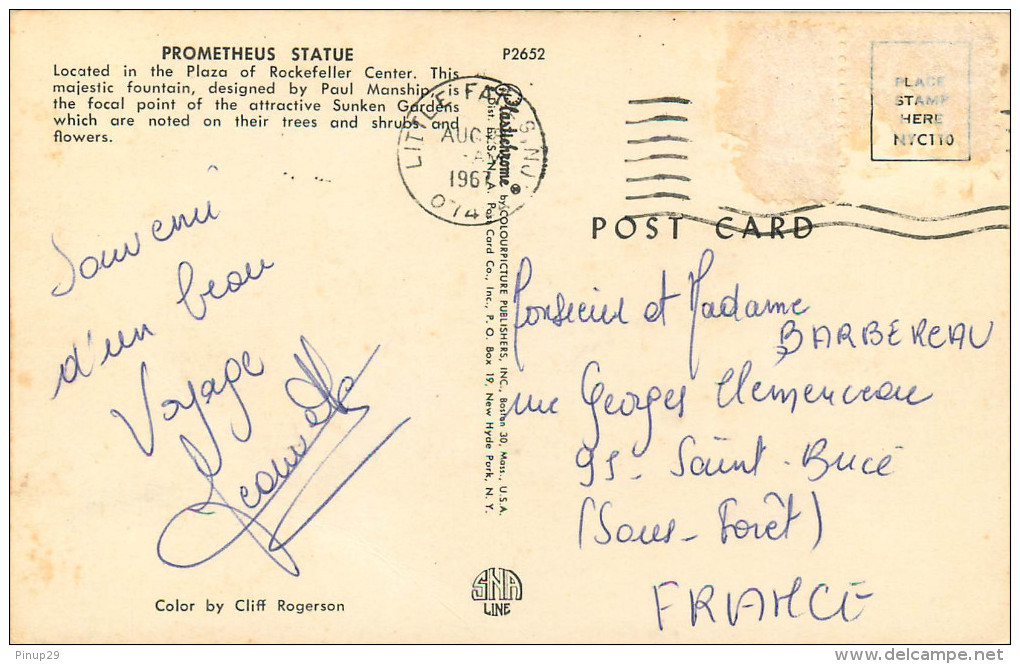 PROMETHEUS STATUE
Located in the Plaza of Rockefeller Center. This
majestic fountain, designed by Paul Manship, is
the focal point of the attractive Sunken Gardens
which are noted on their trees and shrubs and
flowers.
P2652
LITTLE FALLS, NJ
AUG
1967
074
PLACE
STAMP
HERE
NYC110
Plastichrome® by COLOURPICTURE PUBLISHERS, INC., Boston 30, Mass., U.S.A.
Dist. by S. N. A. Post Card Co., Inc., P. O. Box 19, New Hyde Park, N. Y.
POST CARD
Souvenir
d'un beau
Voyage
Monsieur et Madame
BARBEREAU
rue Georges Clemenceau
95 - Saint-Brice
(Sous-Forêt)
FRANCE
SNA
LINE
Color by Cliff Rogerson
Pinup29
www.delcampe.net